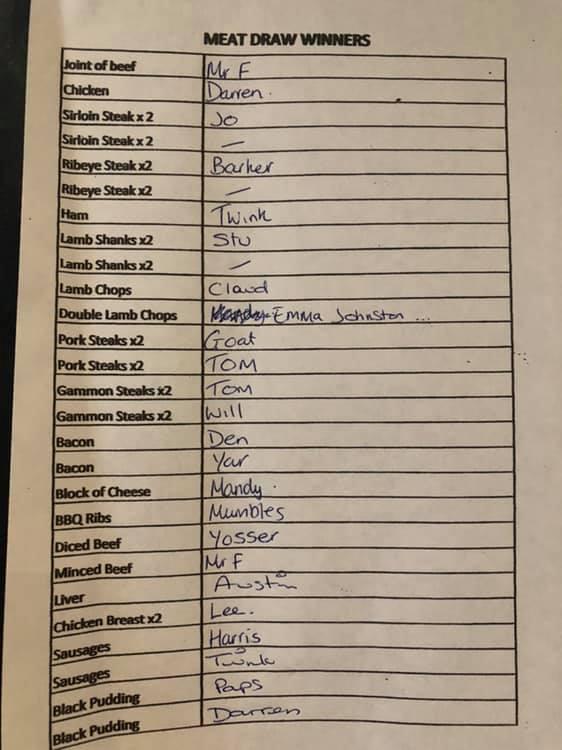 MEAT DRAW WINNERS
Joint of beef Mr F
Chicken Darren.
Sirloin Steak x 2 Jo
Sirloin Steak x 2 —
Ribeye Steak x2 Barker
Ribeye Steak x2 —
Ham Twink
Lamb Shanks x2 Stu
Lamb Shanks x2 —
Lamb Chops Claud
Double Lamb Chops Emma Johnston ...
Pork Steaks x2 Goat
Pork Steaks x2 TOM
Gammon Steaks x2 TOM
Gammon Steaks x2 Will
Bacon Den
Bacon Yar
Block of Cheese Mandy.
BBQ Ribs Mumbles
Diced Beef Yosser
Minced Beef Mr F
Liver Austin
Chicken Breast x2 Lee.
Sausages Harris
Sausages Twink
Black Pudding Paps
Black Pudding Darren